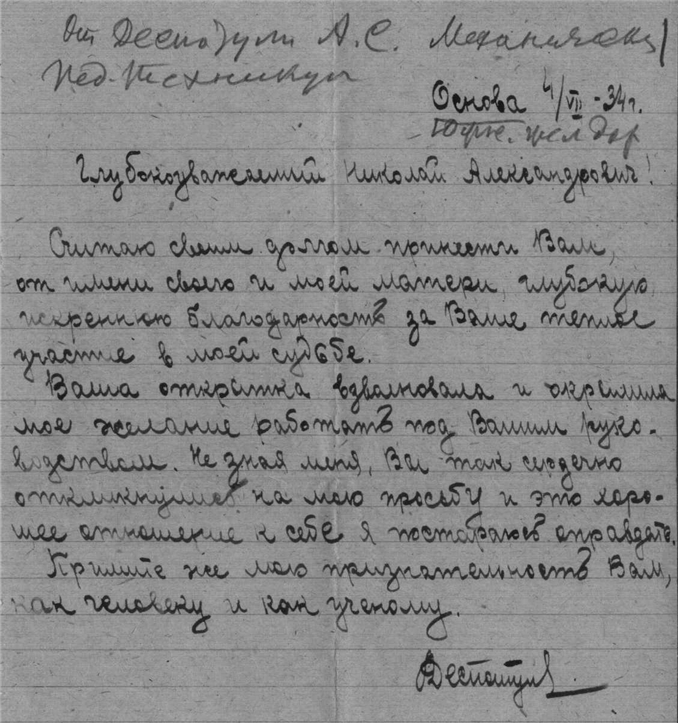 От Деспотули А.С. Механическ
Пед. Техникум
Основа 4/VII - 34 г.
Южн. жел дор
Глубокоуважаемый Николай Александрович!
Считаю своим долгом принести Вам,
от имени своего и моей матери, глубокую,
искреннюю благодарность за Ваше теплое
участие в моей судьбе.
Ваша открытка взволновала и окрылила
мое желание работать под Вашим руко-
водством. Не зная меня, Вы так сердечно
откликнулись на мою просьбу и это хоро-
шее отношение к себе я постараюсь оправдать.
Примите же мою признательность Вам,
как человеку и как ученому.
Деспотули